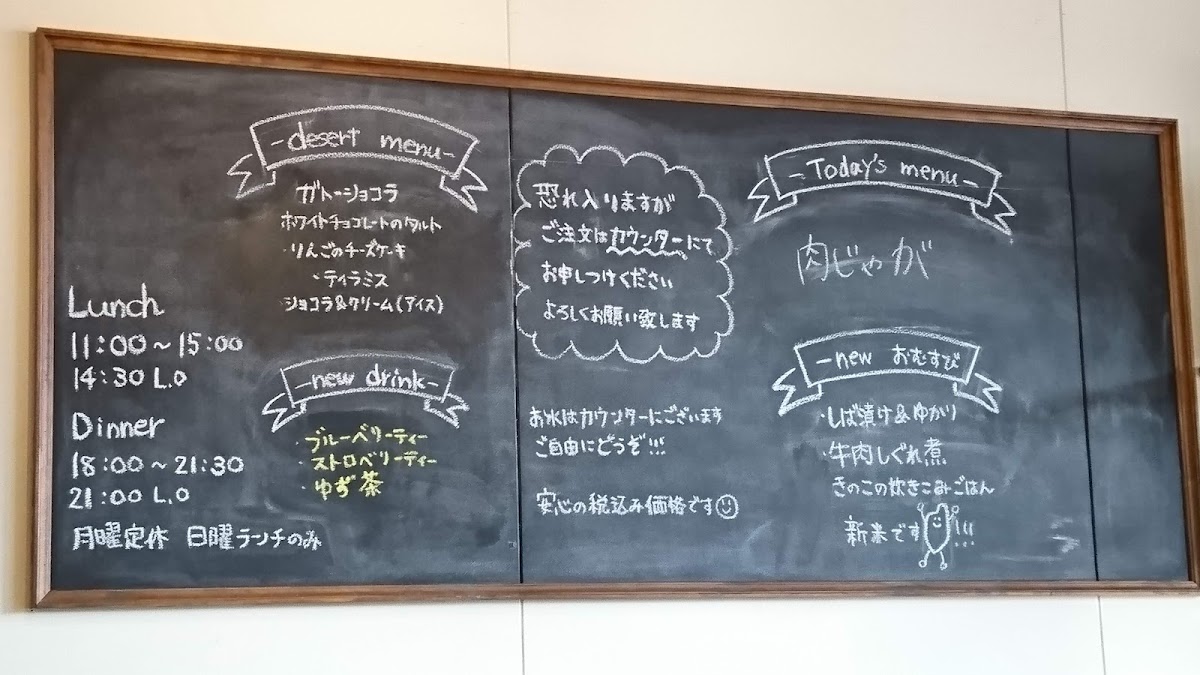 Lunch
11:00～15:00
14:30 L.O
Dinner
18:00～21:30
21:00 L.O
月曜定休 日曜ランチのみ
-desert menu-
ガトーショコラ
ホワイトチョコレートのタルト
・りんごのチーズケーキ
・ティラミス
ショコラ&クリーム(アイス)
-new drink-
・ブルーベリーティー
・ストロベリーティー
・ゆず茶
恐れ入りますが
ご注文はカウンターにて
お申しつけください
よろしくお願い致します
お水はカウンターにございます
ご自由にどうぞ!!!
安心の税込み価格です
-Today's menu-
肉じゃが
-new おむすび
・しば漬け&ゆかり
・牛肉しぐれ煮
きのこの炊きこみごはん
新米です!!!